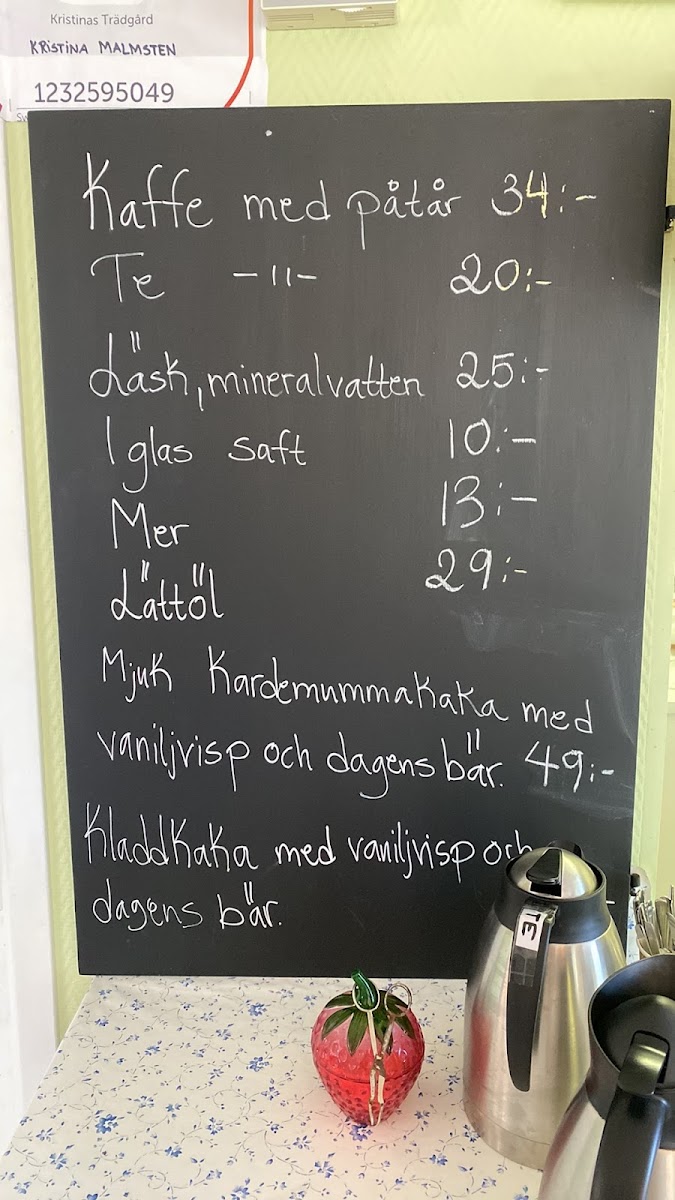 Kristinas Trädgård
KRISTINA MALMSTEN
1232595049
Sw
Kaffe med påtår 34:-
Te -11- 20:-
Läsk, mineralvatten 25:-
1 glas saft 10:-
Mer 13:-
Lättöl 29:-
Mjuk Kardemummakaka med
vaniljvisp och dagens bär. 49:-
Kladdkaka med vaniljvisp och
dagens bär.
TE